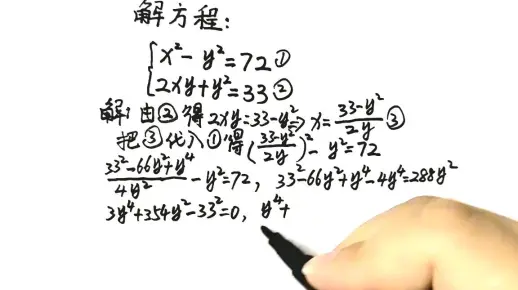 解方程:
x²-y²=72①
2xy+y²=33②
解:由②得2xy=33-y²⇒x=(33-y²)/(2y) ③
把③代入①得((33-y²)/(2y))²-y²=72
(33²-66y²+y⁴)/(4y²)-y²=72, 33²-66y²+y⁴-4y⁴=288y²
3y⁴+354y²-33²=0, y⁴+